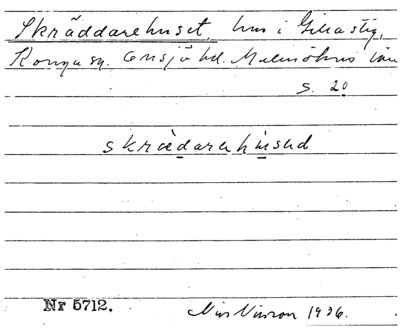 Skräddarehuset, hus i Gikastig,
Konga sn. Onsjö hd. Malmöhus län
s. 20
skrædarehused
Nr 5712.
Nils Nilsson 1936.